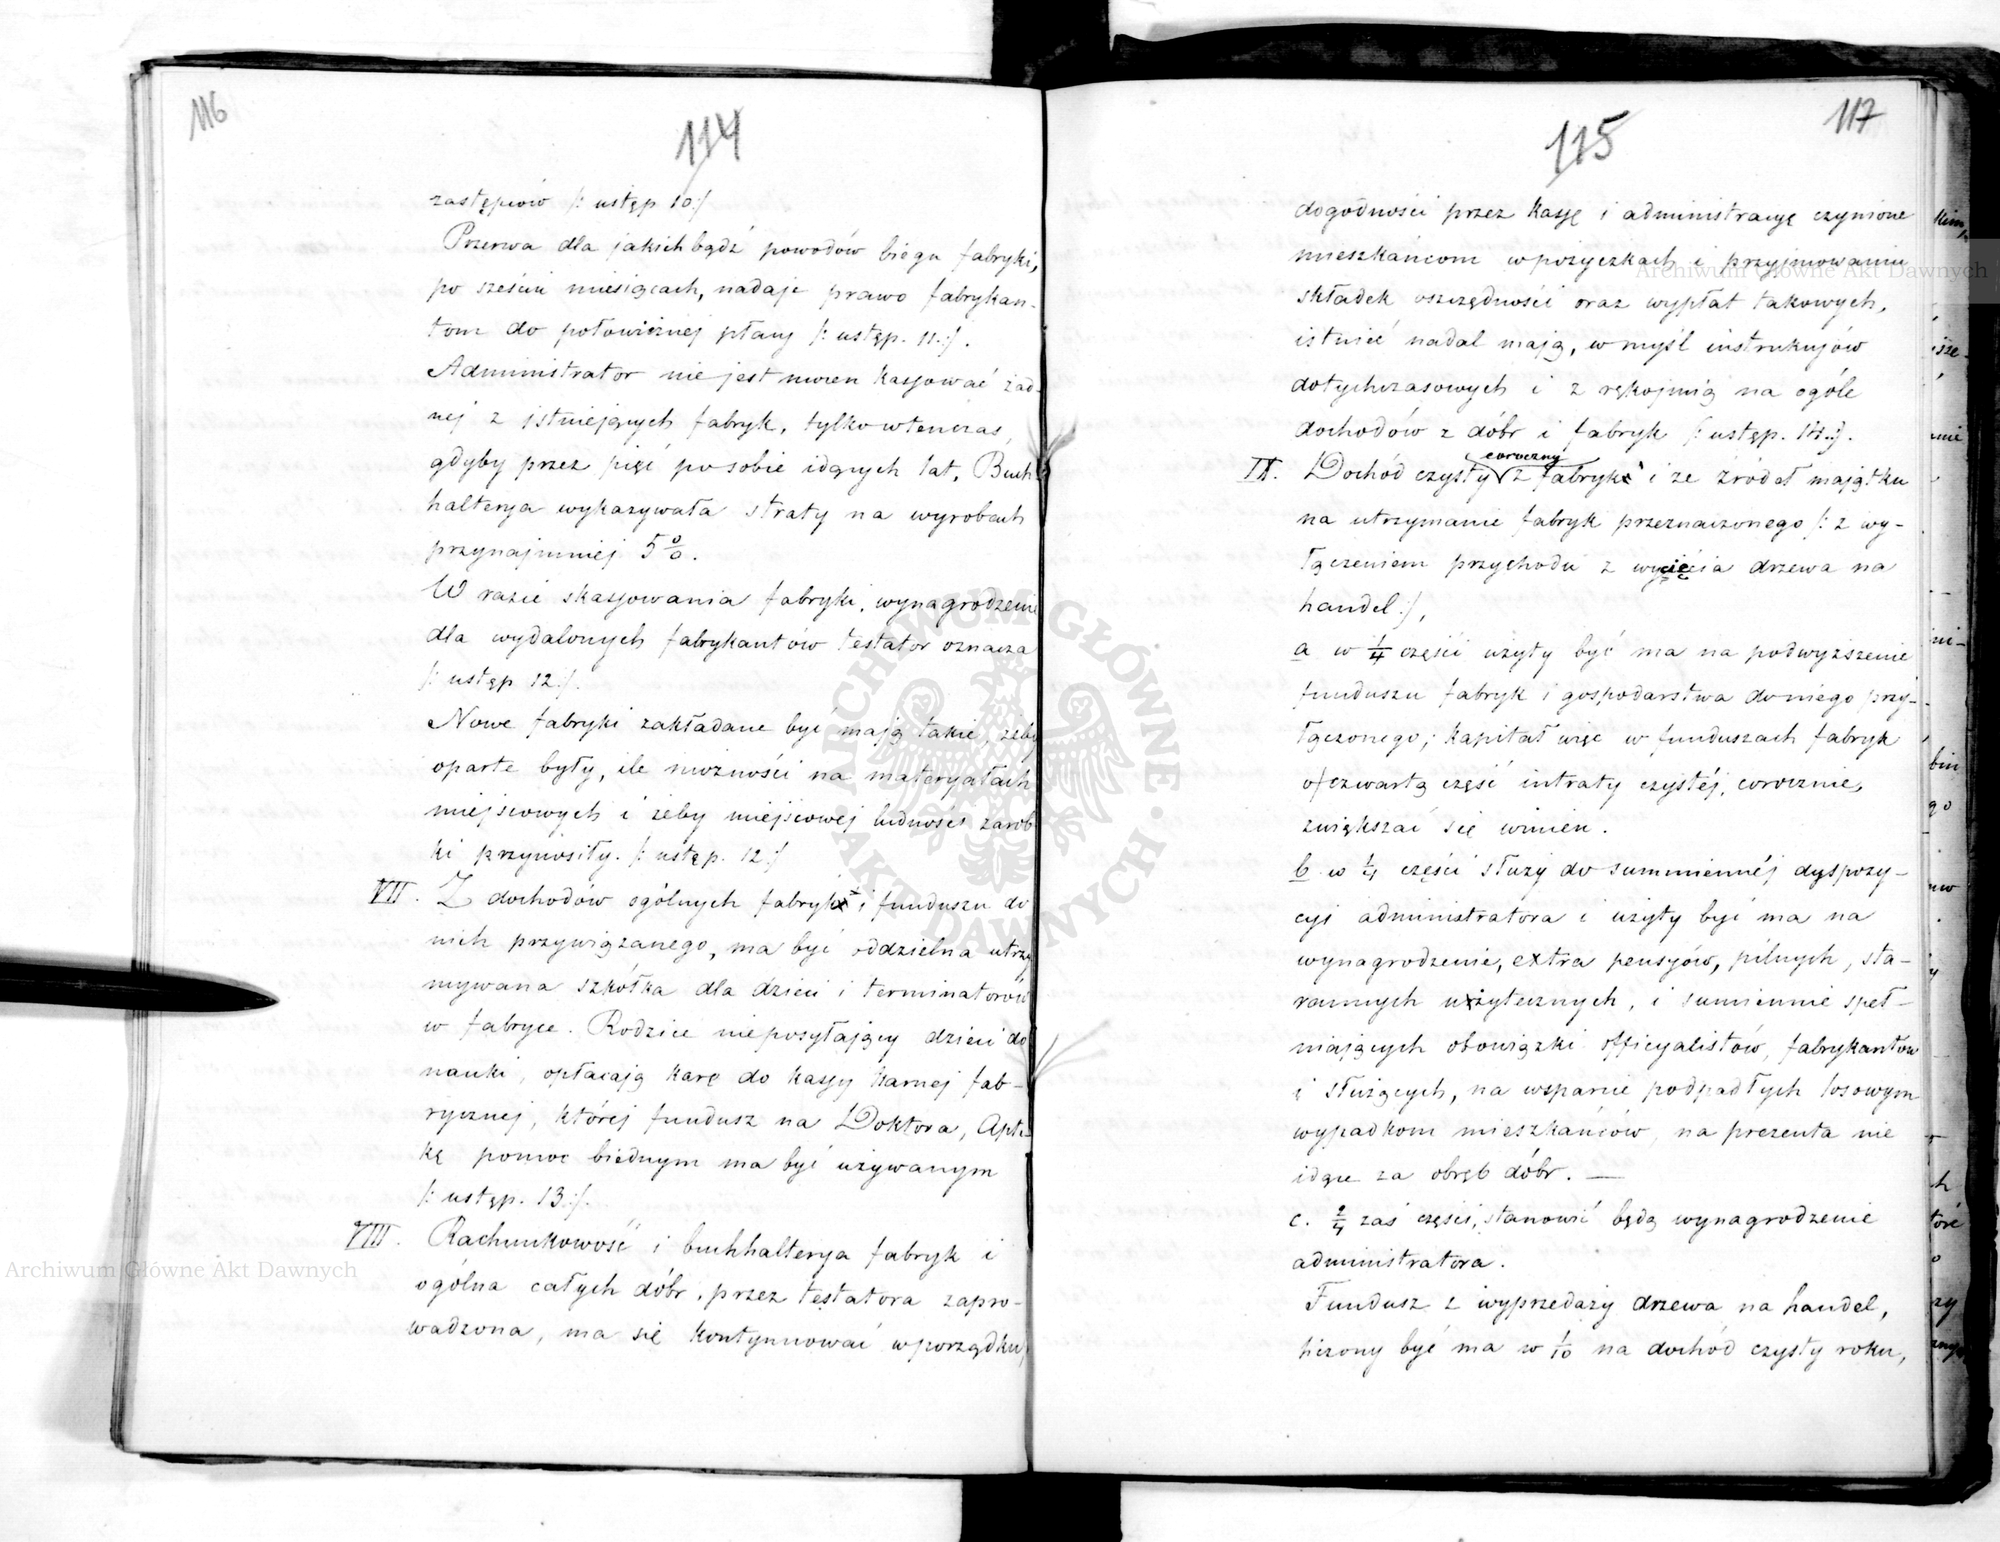 116
114
zastępców /: ustęp 10:/
Przerwa dla jakichbądź powodów biegu fabryki,
po sześciu miesiącach, nadaje prawo fabrykan-
tom do połowicznej płacy /: ustęp. 11.:/.
Administrator nie jest mocen kassować żad-
nej z istniejących fabryk, tylko wtenczas,
gdyby przez pięć po sobie idących lat, Buch-
halterya wykazywała straty na wyrobach
przynajmniej 5%.
W razie skassowania fabryki, wynagrodzenie
dla wydalonych fabrykantów testator oznacza
/: ustęp 12:/.
Nowe fabryki zakładane być mają takie, żeby
oparte były, ile możności na materyałach
miejscowych i żeby miejscowej ludności zarob
ki przynosiły. /: ustęp. 12:/
VII. Z dochodów ogólnych fabryk i funduszu do
nich przywiązanego, ma być oddzielna utrzy
mywana szkółka dla dzieci i terminatorów
w fabryce. Rodzice nieposyłający dzieci do
nauki, opłacają karę do kassy karnej fab-
rycznej, której fundusz na Doktora, Apte-
kę pomoc biednym ma być używanym
/: ustęp. 13:/.
VIII. Rachunkowość i buchhalterya fabryk i
ogólna całych dóbr, przez testatora zapro-
wadzona, ma się kontynuować w porządku,
117
115
dogodności przez kassę i administracyę czynione
mieszkańcom w pożyczkach i przyjmowaniu
składek oszczędności oraz wypłat takowych,
istnieć nadal mają, w myśl instrukcyjów
dotychczasowych i z rękojmią na ogóle
dochodów z dóbr i fabryk /: ustęp. 14.:/.
coroczny
IX. Dochód czysty z fabryk i ze źródeł majątku
na utrzymanie fabryk przeznaczonego /: z wy-
łączeniem przychodu z wycięcia drzewa na
handel:/,
a w 1/4 części użyty być ma na podwyższenie
funduszu fabryk i gospodarstwa do niego przy-
łączonego; kapitał więc w funduszach fabryk
o czwartą część intraty czystéj, corocznie,
zwiększać się winien.
b w 1/4 części służy do summiennéj dyspozy-
cyi administratora i użyty być ma na
wynagrodzenie, extra pensyów, pilnych, sta-
rannych użytecznych, i sumiennie speł-
niających obowiązki officyalistów, fabrykantów
i służących, na wsparcie podpadłych losowym
wypadkom mieszkańców, na prezenta nie
idące za obręb dóbr. —
c. 2/4 zaś części, stanowić będą wynagrodzenie
administratora.
Fundusz z wyprzedaży drzewa na handel,
liczony być ma w 1/10 na dochód czysty roku,
Archiwum Główne Akt Dawnych
Archiwum Główne Akt Dawnych
ARCHIWUM GŁÓWNE AKT DAWNYCH